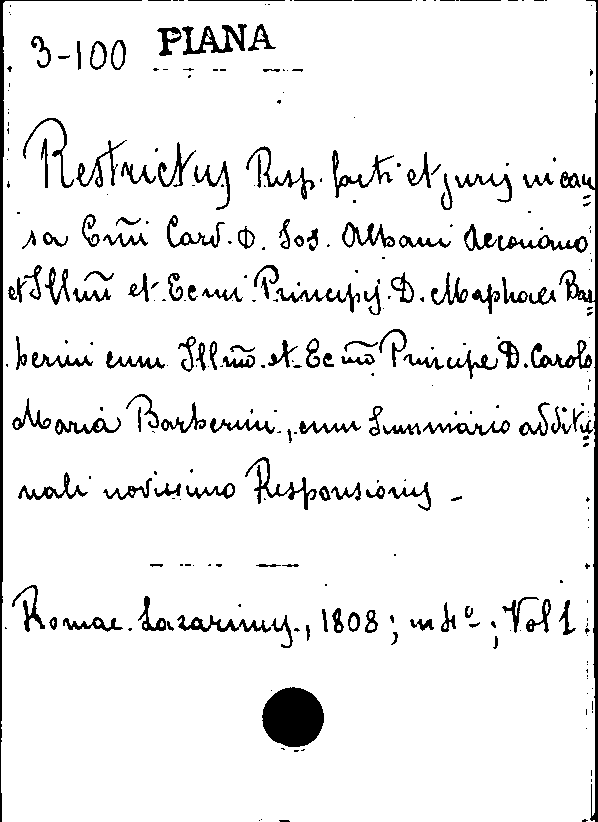 3-100 PIANA
Restrictus Resp. facti et juris in cau=
sa Emi Card. D. Jos. Albani Deconano
et Illmi et Ecmi Principis D. Maphaei Bar=
berini cum Illmo et Ecmo Principe D. Carolo
Maria Barberini, cum Summario additio=
nali novissimo Responsionis -
Romae. Lazarinus., 1808; in 4º; Vol 1.